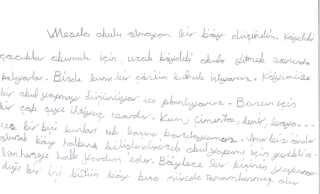 Mesela okulu olmayan bir köy düşünelim. Köydeki
çocuklar okumak için uzak köydeki okula gitmek zorunda
kalıyorlar. Bizde buna bir çözüm bulmak istiyoruz. Köyümüze
bir okul yapmayı düşünüyor ve planlıyoruz. Bunun için
bir çok şeye ihtiyaç vardır. Kum, Çimento, demir,
ve bir kişi bunları tek başına karşılayamaz.
olarak köy halkına okul yapımı için gerekli
malzemeye halk yardım eder. Böylece bir kişinin yapacağı
bir işi bütün köy kısa sürede tamamlanmış olur